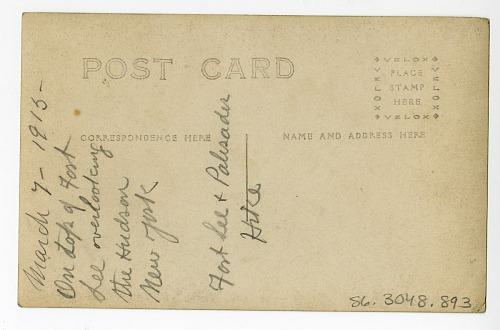 POST CARD
VELOX
VELOX
PLACE
STAMP
HERE
VELOX
VELOX
CORRESPONDENCE HERE
NAME AND ADDRESS HERE
March 7 - 1915 -
On top of Fort
Lee overlooking
the Hudson
New York
Fort Lee & Palisades
Hike
86.3048.893